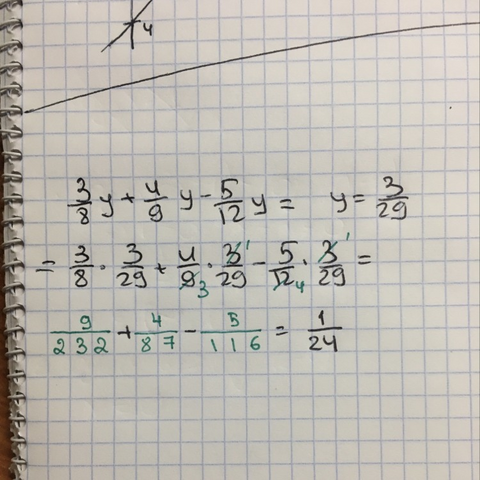 4
3/8 y + 4/9 y - 5/12 y = y = 3/29
= 3/8 · 3/29 + 4/9 3 · 3/29 1 - 5/12 4 · 3/29 1 =
9/232 + 4/87 - 5/116 = 1/24